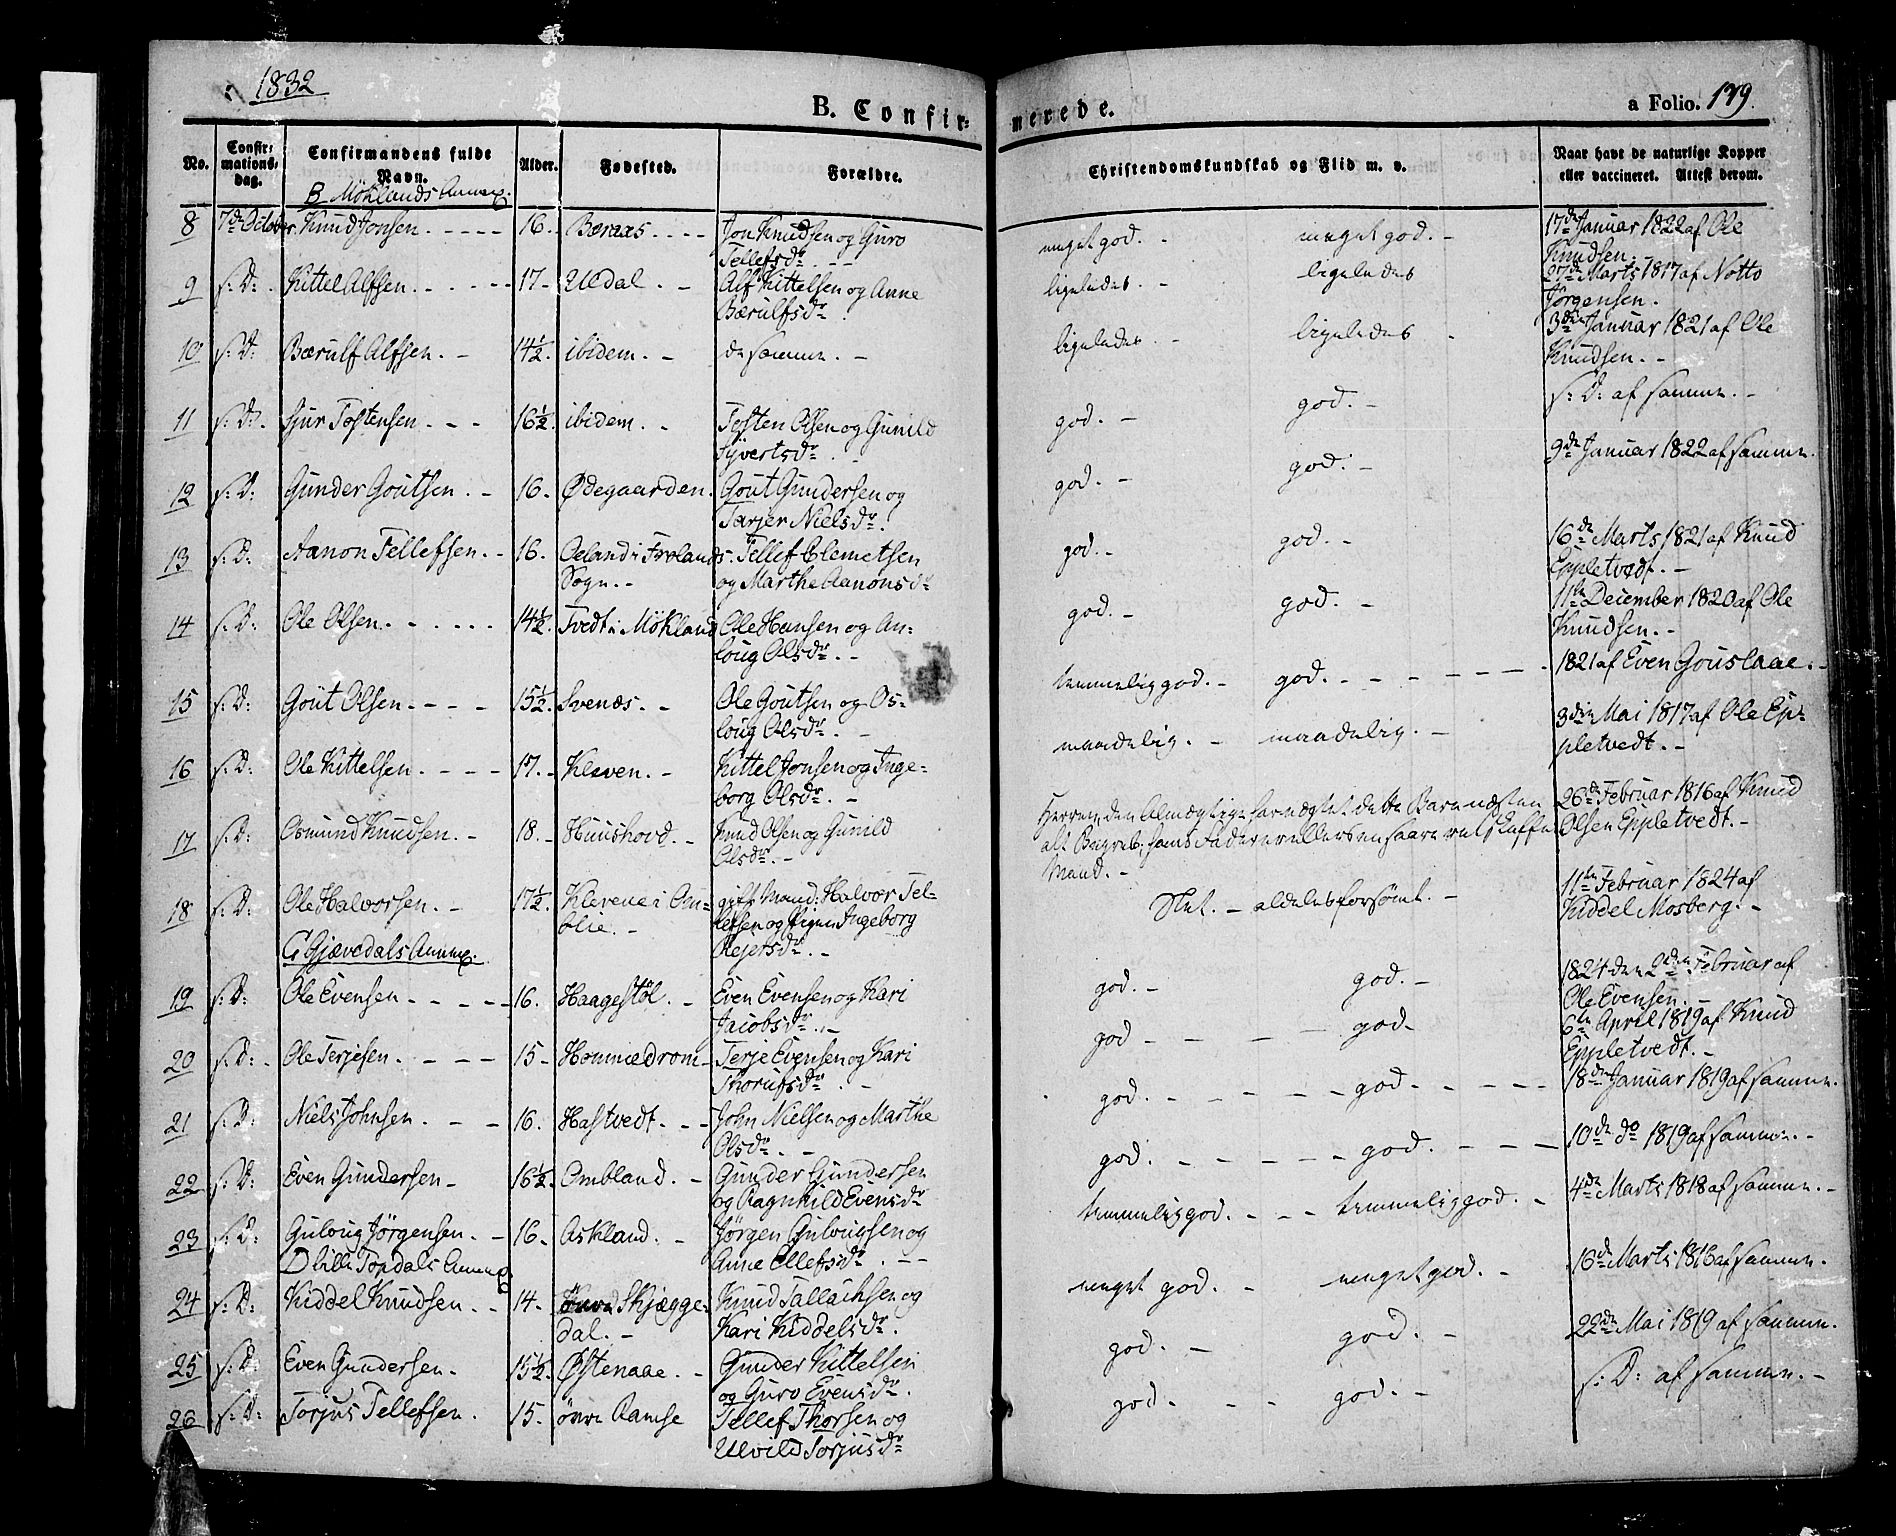 1832
B. Confirmerede.
a Folio. 179.
No.
Confirmationsdag.
Confirmandens fulde Navn.
Alder.
Fødested.
Forældre.
Christendomskundskab og Flid m. v.
Naar havt de naturlige Kopper eller vaccineret. Attest derom.
B Möklands Annex.
8 7de October. Knud Jonsen. 16. Bæraas. Jon Knudsen og Guro
Tellefsdr.
meget god. meget god. 17de Januar 1822 af Ole
Knudsen.
9 s: D: Kittel Alfsen. 17. Uldal. Alf Kittelsen og Anne
Bærulfsdr.
ligeledes. ligeledes 27de Marts 1817 af Notto
Jørgensen.
10 s: D: Bærulf Alfsen. 14½. ibidem. de samme.
ligeledes. ligeledes 3die Januar 1821 af Ole
Knudsen.
11 s: D: Sjur Tostensen. 16½. ibidem. Tosten Olsen og Gunild
Syvertsdr.
god. god. s: D: af samme.
12 s: D: Gunder Goutsen. 16. Ødegaarden. Gout Gundersen og
Tarjer Nielsdr.
god. god. 9de Januar 1822 af samme.
13 s: D: Aanon Tellefsen. 16. Oeland i Frolands Tellef Clemetsen
Sogn. og Marthe Aanonsdr
god. god. 16de Marts 1821 af Knud
Eppletvedt.
14 s: D: Ole Olsen. 14½. Tvedt i Mökland Ole Hansen og An-
loug Olsdr.
god. god. 11te December 1820 af Ole
Knudsen.
15 s: D: Gout Olsen. 15½. Svenæs. Ole Goutsen og Os-
loug Olsdr.
temmelig god. god. 1821 af Even Gouslaae.
16 s: D: Ole Kittelsen. 17. Kleven. Kittel Jonsen og Inge-
borg Olsdr.
maadelig. maadelig. 3die Mai 1817 af Ole Ep-
pletvedt.
17 s: D: Osmund Knudsen. 18. Huushovd. Knud Olsen og Gunild
Olsdr.
Herren, den Almægtige har nægtet dette Barn næsten
alt Begreb; hans Fader er ellers en saare retskaffen
Mand.
26de Februar 1816 af Knud
Olsen Eppletvedt.
18 s: D: Ole Halvorsen. 17½. Klevene i Om- gift Mand: Halvor Tel-
blie. lefsen og Pigen Ingeborg
Rejersdr.
Slet. aldeles forsømt. 11te Februar 1824 af
Kiddel Mosberg.
C Gjævedals Annex.
19 s: D: Ole Evensen 16. Haagestöl. Even Evensen og Kari
Jacobsdr.
god. god. 1824 den 2den Februar af
Ole Evensen.
20 s: D: Ole Terjesen. 15 Hommedrom Terje Evensen og Kari
Thorufsdr.
god god 6te April 1819 af Knud
Eppletvedt.
21 s: D: Niels Johnsen. 16. Hastvedt. John Nielsen og Marthe
Olsdr.
god. god. 18de Januar 1819 af samme.
22 s: D: Even Gundersen 16½. Ombland. Gunder Gundersen
og Ragnhild Evensdr
god. god. 10de do 1819 af samme.
23 s: D: Guloug Jørgensen. 16. Askland. Jørgen Gulougsen og
Anne Ellefsdr.
temmelig god. temmelig god. 4de Marts 1818 af samme.
D Lille Tovdals Annex
24 s: D: Kiddel Knudsen. 14. övre Skjægge- Knud Tallachsen og
dal. Kari Kiddelsdr.
meget god. meget god. 16de Marts 1816 af samme.
25 s: D: Even Gundersen. 15½. Østenaae. Gunder Kittelsen
og Guro Evensdr.
god. god. 22de Mai 1819 af samme.
26 s: D: Torjus Tellefsen. 15. övre Ramse Tellef Thorsen og
Ulvild Torjusdr
god. god. s: D: af samme.